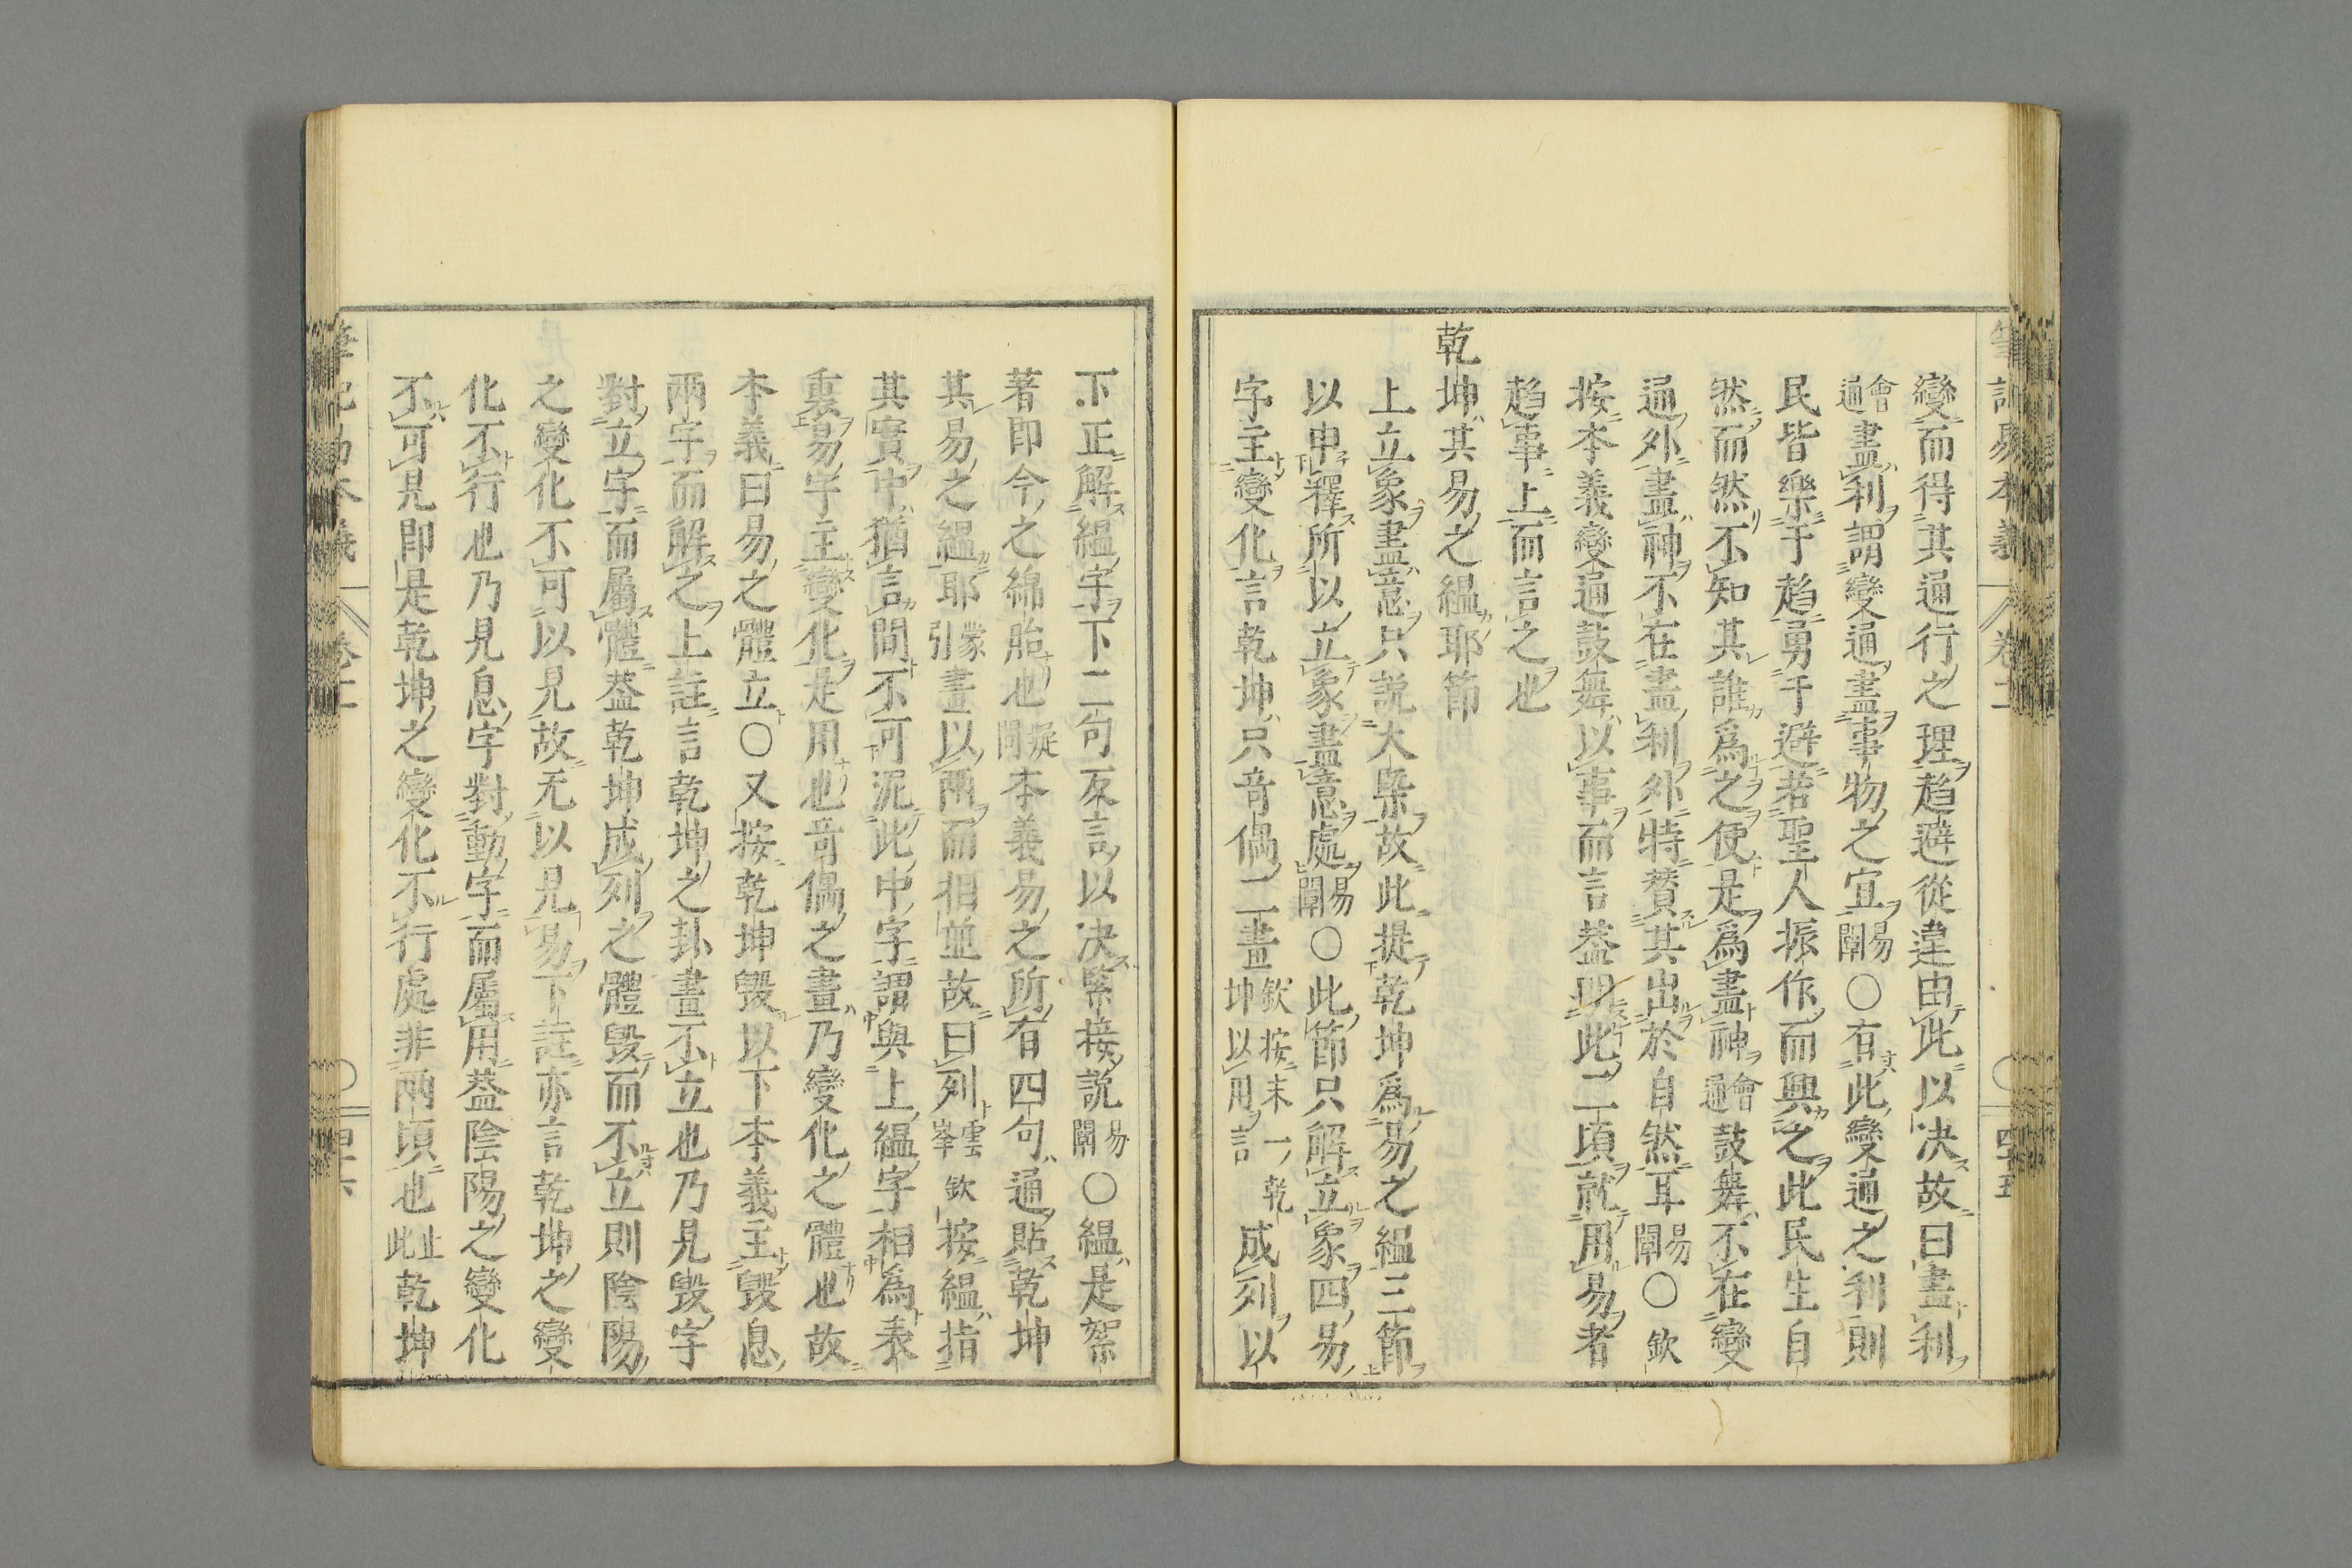 變而得其通行之理趨避從違由此以决故曰盡利
會通盡利謂變通盡事物之宜易闡〇有此變通之利則
民皆樂于趨勇于避若聖人振作而興之此民生自
然而然不知其誰爲之便是爲盡神會通鼓舞不在變
通外盡神不在盡利外特賛其出於自然耳易闡〇欽
按本義變通鼓舞以事而言葢明此二項就用易者
趨事上而言之也
乾坤其易之縕耶節
上立象盡意只説大槩故此提乾坤爲易之縕三節
以申釋所以立象盡意處易闡〇此節只解立象四易
字主變化言乾坤只竒偶二畫欽按末一乾坤以用言成列以
下正解縕字下二句反言以决緊接説易闡〇縕是絮
著即今之綿胎也㨗問本義易之所有四句通貼乾坤
其易之縕耶蒙引畫以兩而相並故曰列雲峯欽按縕指
其實中猶言間不可泥此中字謂與上縕字相爲表
裏易字主變化是用也竒偶之畫乃變化之體也故
本義曰易之體立〇又按乾坤毀以下本義主毀息
兩字而解之上註言乾坤之卦畫不立也乃見毀字
對立字而屬體葢乾坤成列之體毀而不立則陰陽
之變化不可以見故无以見易下註亦言乾坤之變
化不行也乃見息字對動字而屬用葢陰陽之變化
不可見即是乾坤之變化不行處非兩項也止此乾坤